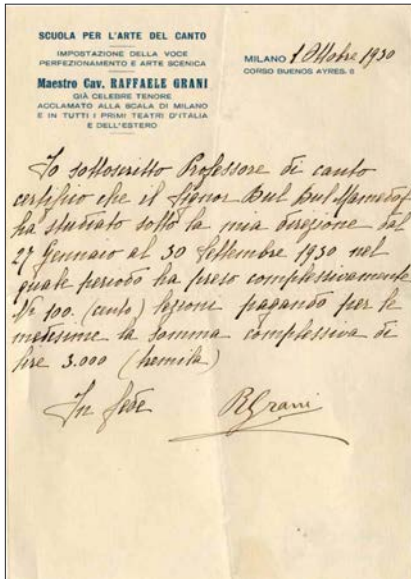 SCUOLA PER L'ARTE DEL CANTO
IMPOSTAZIONE DELLA VOCE
PERFEZIONAMENTO E ARTE SCENICA
Maestro Cav. RAFFAELE GRANI
GIÀ CELEBRE TENORE
ACCLAMATO ALLA SCALA DI MILANO
E IN TUTTI I PRIMI TEATRI D'ITALIA
E DELL'ESTERO
MILANO 1 Ottobre 1930
CORSO BUENOS AYRES. 8
Io sottoscritto Professore di canto
certifico che il Signor Bul Bul Mamedof
ha studiato sotto la mia direzione dal
27 Gennaio al 30 Settembre 1930 nel
quale periodo ha preso complessivamente
N: 100. (cento) lezioni pagando per le
medesime la somma complessiva di
lire 3.000 (tremila)
In fede
R Grani